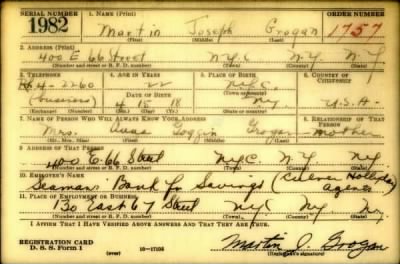 SERIAL NUMBER 1. NAME (Print) ORDER NUMBER
1982 Martin Joseph Grogan 1757
(First) (Middle) (Last)
2. ADDRESS (Print)
400 E 66 Street N.Y.C. N.Y. N.Y.
(Number and street or R. F. D. number) (Town) (County) (State)
3. TELEPHONE 4. AGE IN YEARS 5. PLACE OF BIRTH 6. COUNTRY OF CITIZENSHIP
4-2260 22 N.Y.C.
(business) DATE OF BIRTH (Town or county)
4 15 18 N.Y. U.S.A.
(Exchange) (Number) (Mo.) (Day) (Yr.) (State or country)
7. NAME OF PERSON WHO WILL ALWAYS KNOW YOUR ADDRESS 8. RELATIONSHIP OF THAT PERSON
Mrs. Goggin Grogan mother
(Mr., Mrs., Miss) (First) (Middle) (Last)
9. ADDRESS OF THAT PERSON
400 E. 66 Street N.Y.C. N.Y. N.Y.
(Number and street or R. F. D. number) (Town) (County) (State)
10. EMPLOYER'S NAME
Seamans Bank for Savings (Culver Holliday Agency
11. PLACE OF EMPLOYMENT OR BUSINESS
130 East 67 Street N.Y.C. N.Y. N.Y.
(Number and street or R. F. D. number) (Town) (County) (State)
I AFFIRM THAT I HAVE VERIFIED ABOVE ANSWERS AND THAT THEY ARE TRUE.
REGISTRATION CARD
D. S. S. Form 1 (over) 16-17105 Martin J. Grogan
(Registrant's signature)